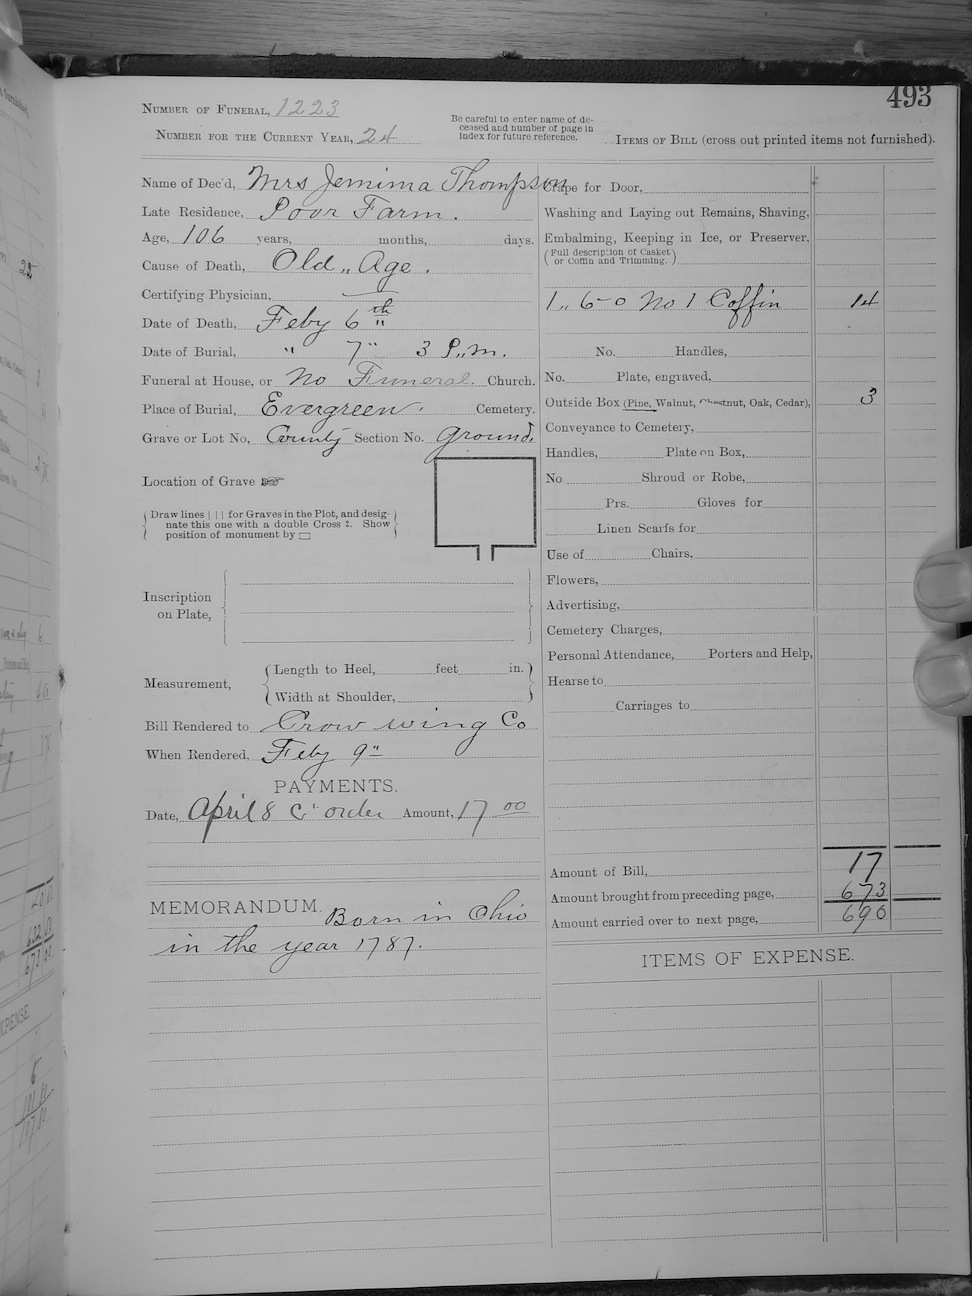 493
NUMBER OF FUNERAL, 1223
NUMBER FOR THE CURRENT YEAR, 24
Be careful to enter name of de-
ceased and number of page in
index for future reference.
ITEMS OF BILL (cross out printed items not furnished).
Name of Dec'd, Mrs Jemima Thompson
Late Residence, Poor Farm.
Age, 106 years, months, days.
Cause of Death, Old Age.
Certifying Physician,
Date of Death, Feby 6th
Date of Burial, " 7" 3 P.,m.
Funeral at House, or No Funeral. Church.
Place of Burial, Evergreen. Cemetery.
Grave or Lot No, County Section No. ground.
Location of Grave
Draw lines | | | for Graves in the Plot, and desig-
nate this one with a double Cross ‡. Show
position of monument by
Inscription
on Plate,
Measurement,
Length to Heel, feet in.
Width at Shoulder,
Bill Rendered to Crow wing Co
When Rendered, Feby 9"
PAYMENTS.
Date, April 8 order Amount, 17 00
MEMORANDUM. Born in Ohio
in the year 1787.
Crape for Door,
Washing and Laying out Remains, Shaving,
Embalming, Keeping in Ice, or Preserver,
(Full description of Casket
or Coffin and Trimming.)
1,, 6-0 No 1 Coffin 14
No. Handles,
No. Plate, engraved,
Outside Box (Pine, Walnut, Chestnut, Oak, Cedar), 3
Conveyance to Cemetery,
Handles, Plate on Box,
No. Shroud or Robe,
Prs. Gloves for
Linen Scarfs for
Use of Chairs,
Flowers,
Advertising,
Cemetery Charges,
Personal Attendance, Porters and Help,
Hearse to
Carriages to
Amount of Bill, 17
Amount brought from preceding page, 673
Amount carried over to next page, 690
ITEMS OF EXPENSE.